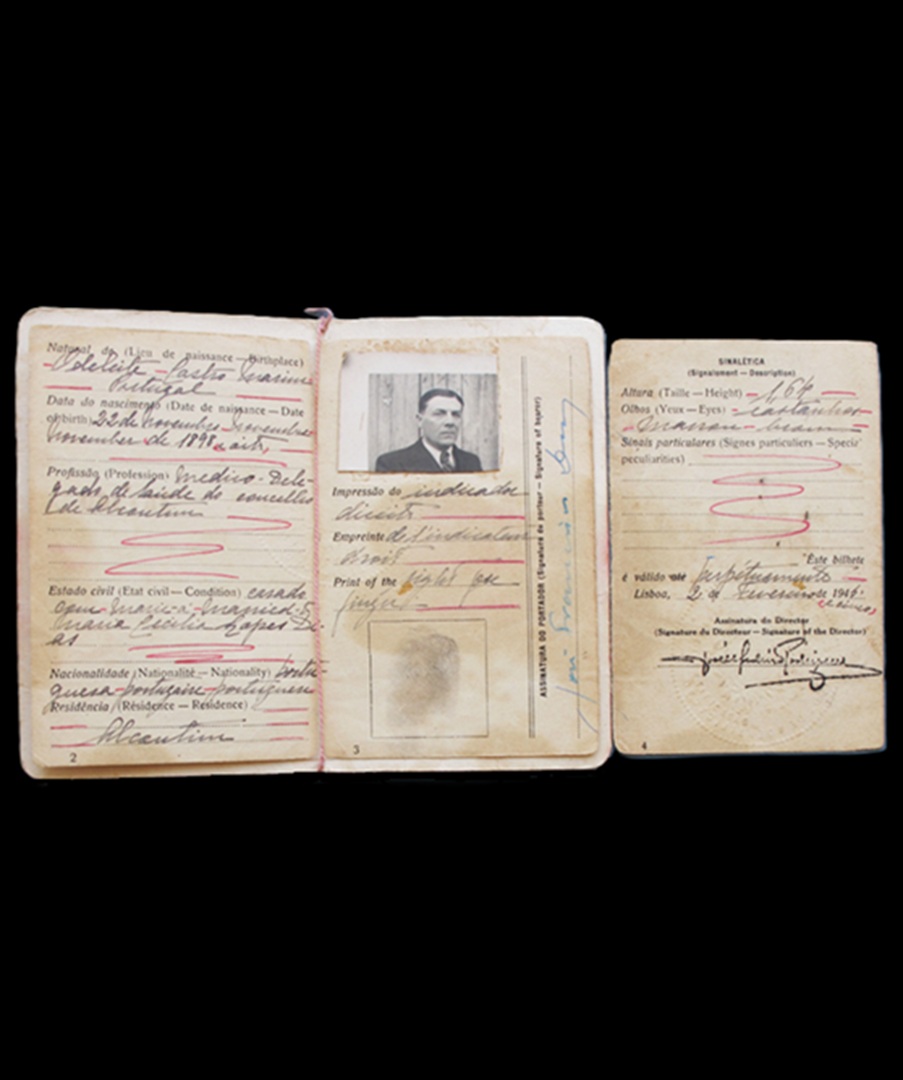 Natural de (Lieu de naissance — Birthplace)
Odeleite - Castro Marim
Portugal
Data do nascimento (Date de naissance — Date
of birth) 22 de Novembro - novembre
november de 1898 - oito
Profissão (Profession) Medico - Dele-
gado de Saúde do concelho
de Alcoutim
Estado civil (État civil — Condition) casado
com - marié à - married - S
Maria Cecilia Lopes Di-
as
Nacionalidade (Nationalité — Nationality) Portu-
guesa - portugaise - portuguese
Residência (Résidence — Residence)
Alcoutim
2
Impressão do indicador
direito
Empreinte de l'indicateur
droit
Print of the right fore
finger
3
ASSINATURA DO PORTADOR (Signature du porteur — Signature of bearer)
José Francisco
SINALÉTICA
(Signalement — Description)
Altura (Taille — Height) - 1,64
Olhos (Yeux — Eyes) - castanhos -
Marron - brown
Sinais particulares (Signes particuliers — Specia'
peculiarities)
Este bilhete
é válido até Perpétuamente
Lisboa, 2 de Fevereiro de 194
Assinatura do Director
(Signature du Directeur — Signature of the Director)
4